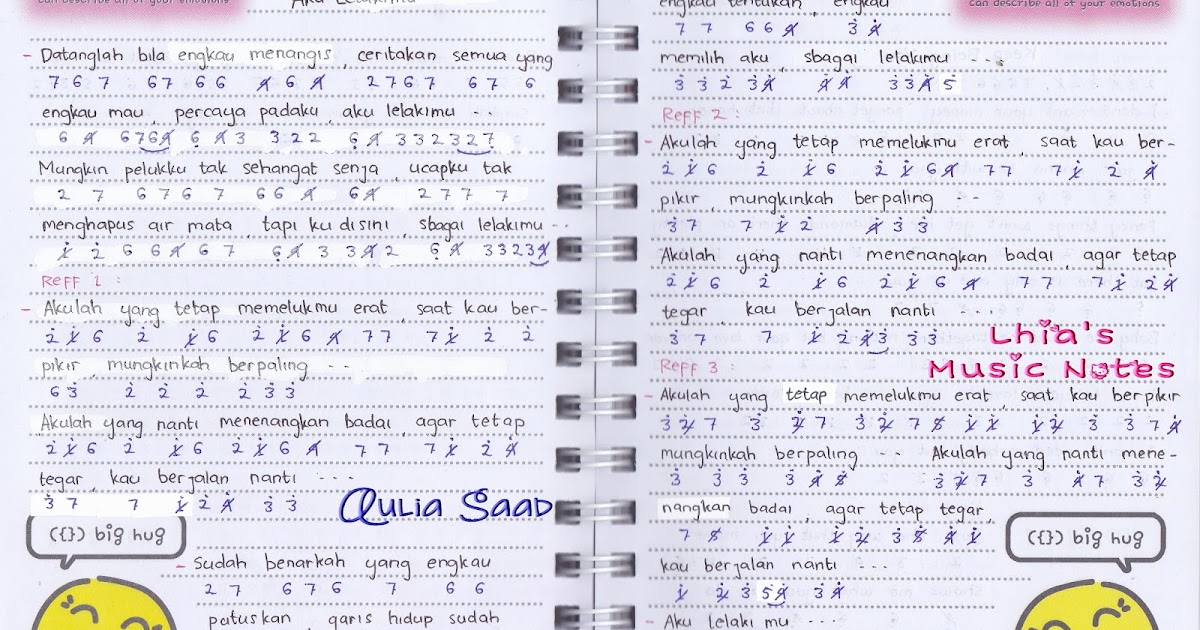 can describe all of your emotions
Aku Lelakimu
- Datanglah bila engkau menangis, ceritakan semua yang
7 6 7 6 7 6 6 4̸ 6 4̸ 2 7 6 7 6 7 6
engkau mau, percaya padaku, aku lelakimu - -
6 4̸ 6 7 6 4̸ 6 4̸ 3 3 2 2 6 4̸ 3 3 2 3 2 7
Mungkin pelukku tak sehangat senja, ucapku tak
2 7 6 7 6 7 6 6 4̸ 6 4̸ 2 7 7 7
menghapus air mata, tapi ku disini, sbagai lelakimu - -
1̸ 2 6 6 4̸ 6 7 6 4̸ 3 3 4̸ 2 6 4̸ 3 3 2 3 4̸
Reff 1 :
- Akulah yang tetap memelukmu erat, saat kau ber-
2 1̸ 6 2 1̸ 6 2 1̸ 6 4̸ 7 7 7 1̸ 2 2
pikir, mungkinkah berpaling - -
6 3 2 2 2 2 3 3
Akulah yang nanti menenangkan badai, agar tetap
2 1̸ 6 2 1̸ 6 2 1̸ 6 4̸ 7 7 7 1̸ 2 4̸
tegar, kau berjalan nanti - - -
3 7 7 1̸ 2 4̸ 3 3
Aulia Saad
({}) big hug
- Sudah benarkah yang engkau
2 7 6 7 6 7 6 6
putuskan, garis hidup sudah
can describe all of your emotions
engkau tentukan, engkau
7 7 6 6 4̸ 3 4̸
memilih aku, sbagai lelakimu - - -
3 3 2 3 4̸ 4̸ 4̸ 3 3 4̸ 5
Reff 2 :
- Akulah yang tetap memelukmu erat, saat kau ber-
2 1̸ 6 2 1̸ 6 2 1̸ 6 4̸ 7 7 7 1̸ 2 4̸
pikir, mungkinkah berpaling - -
3 7 7 1̸ 2 4̸ 3 3
Akulah yang nanti menenangkan badai, agar tetap
2 1̸ 6 2 1̸ 6 2 1̸ 6 4̸ 7 7 7 1̸ 2 4̸
tegar, kau berjalan nanti - - -
3 7 7 1̸ 2 4̸ 3 3 3
Lhia's
Music Notes
Reff 3 :
- Akulah yang tetap memelukmu erat, saat kau berpikir
3 2̸ 7 3 2̸ 7 3 2̸ 7 5̸ 1̸ 1̸ 1̸ 2̸ 3 3 7 4̸
mungkinkah berpaling - - Akulah yang nanti mene-
3 3 3 3 4̸ 5̸ 3 2̸ 7 3 4̸ 7 3 2̸
nangkan badai, agar tetap tegar,
7 5̸ 1̸ 1̸ 1̸ 2̸ 3 5̸ 4̸ 1̸
kau berjalan nanti - - -
1̸ 2̸ 3 5 4̸ 3 4̸
({}) big hug
- Aku lelaki mu - - -